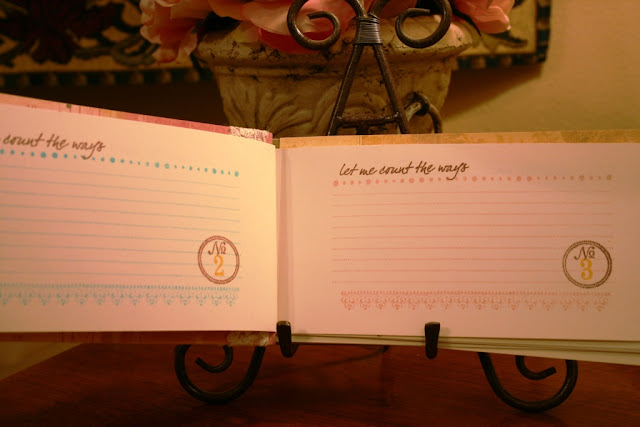 count the ways
No
2
let me count the ways
No
3